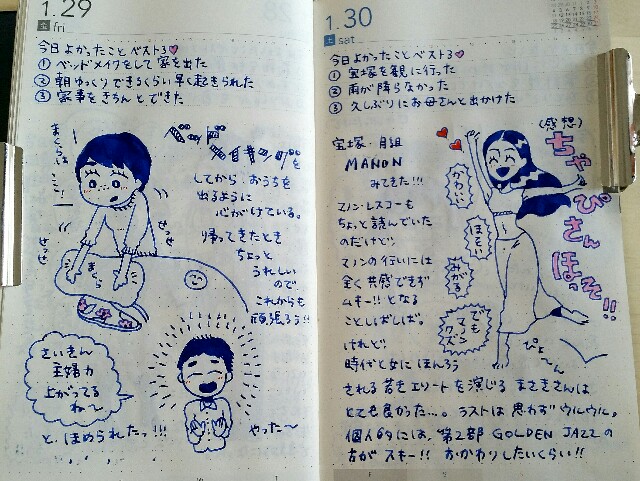 1.29
fri
今日よかったことベスト3♡
① ベッドメイクをして家を出た
② 朝ゆっくりできるくらい早く起きられた
③ 家事をきちんとできた
まくらは
ここ!
せっせ
せっせ
まくら
ベッドメイキングを
してから おうちを
出るように
心がけている。
帰ってきたとき
ちょっと
うれしい
ので
これからも
頑張ろう!!
さいきん
主婦力
上がってる
ね〜
と、ほめられたっ!!!
やった〜
1.30
土
sat
今日よかったことベスト3♡
① 宝塚を観に行った
② 雨が降らなかった
③ 久しぶりにお母さんと出かけた
宝塚・月組
MANON
みてきた!!!
マノン・レスコーも
ちょっと読んでいた
のだけど、
マノンの行いには
全く共感できず
ムキー!!となる
ことしばしば。
けれど、
時代と女にほんろう
される若きエリートを演じる まさきさんは
とても良かった…。ラストは思わずウルウル。
個人的には、第2部 GOLDEN JAZZの
方がスキー!! おかわりしたいくらい!!
(感想)
ちゃぴさんほっそ!!
かわいい
ほそい
みがる
でも
クズン
ぴょ〜ん